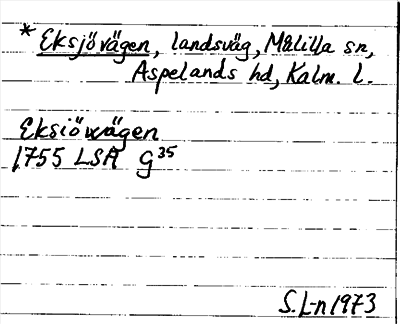 * Eksjövägen, landsväg, Målilla sn,
Aspelands hd, Kalm. l.
Eksiöwägen
1755 LSA G35
S. L-n 1973